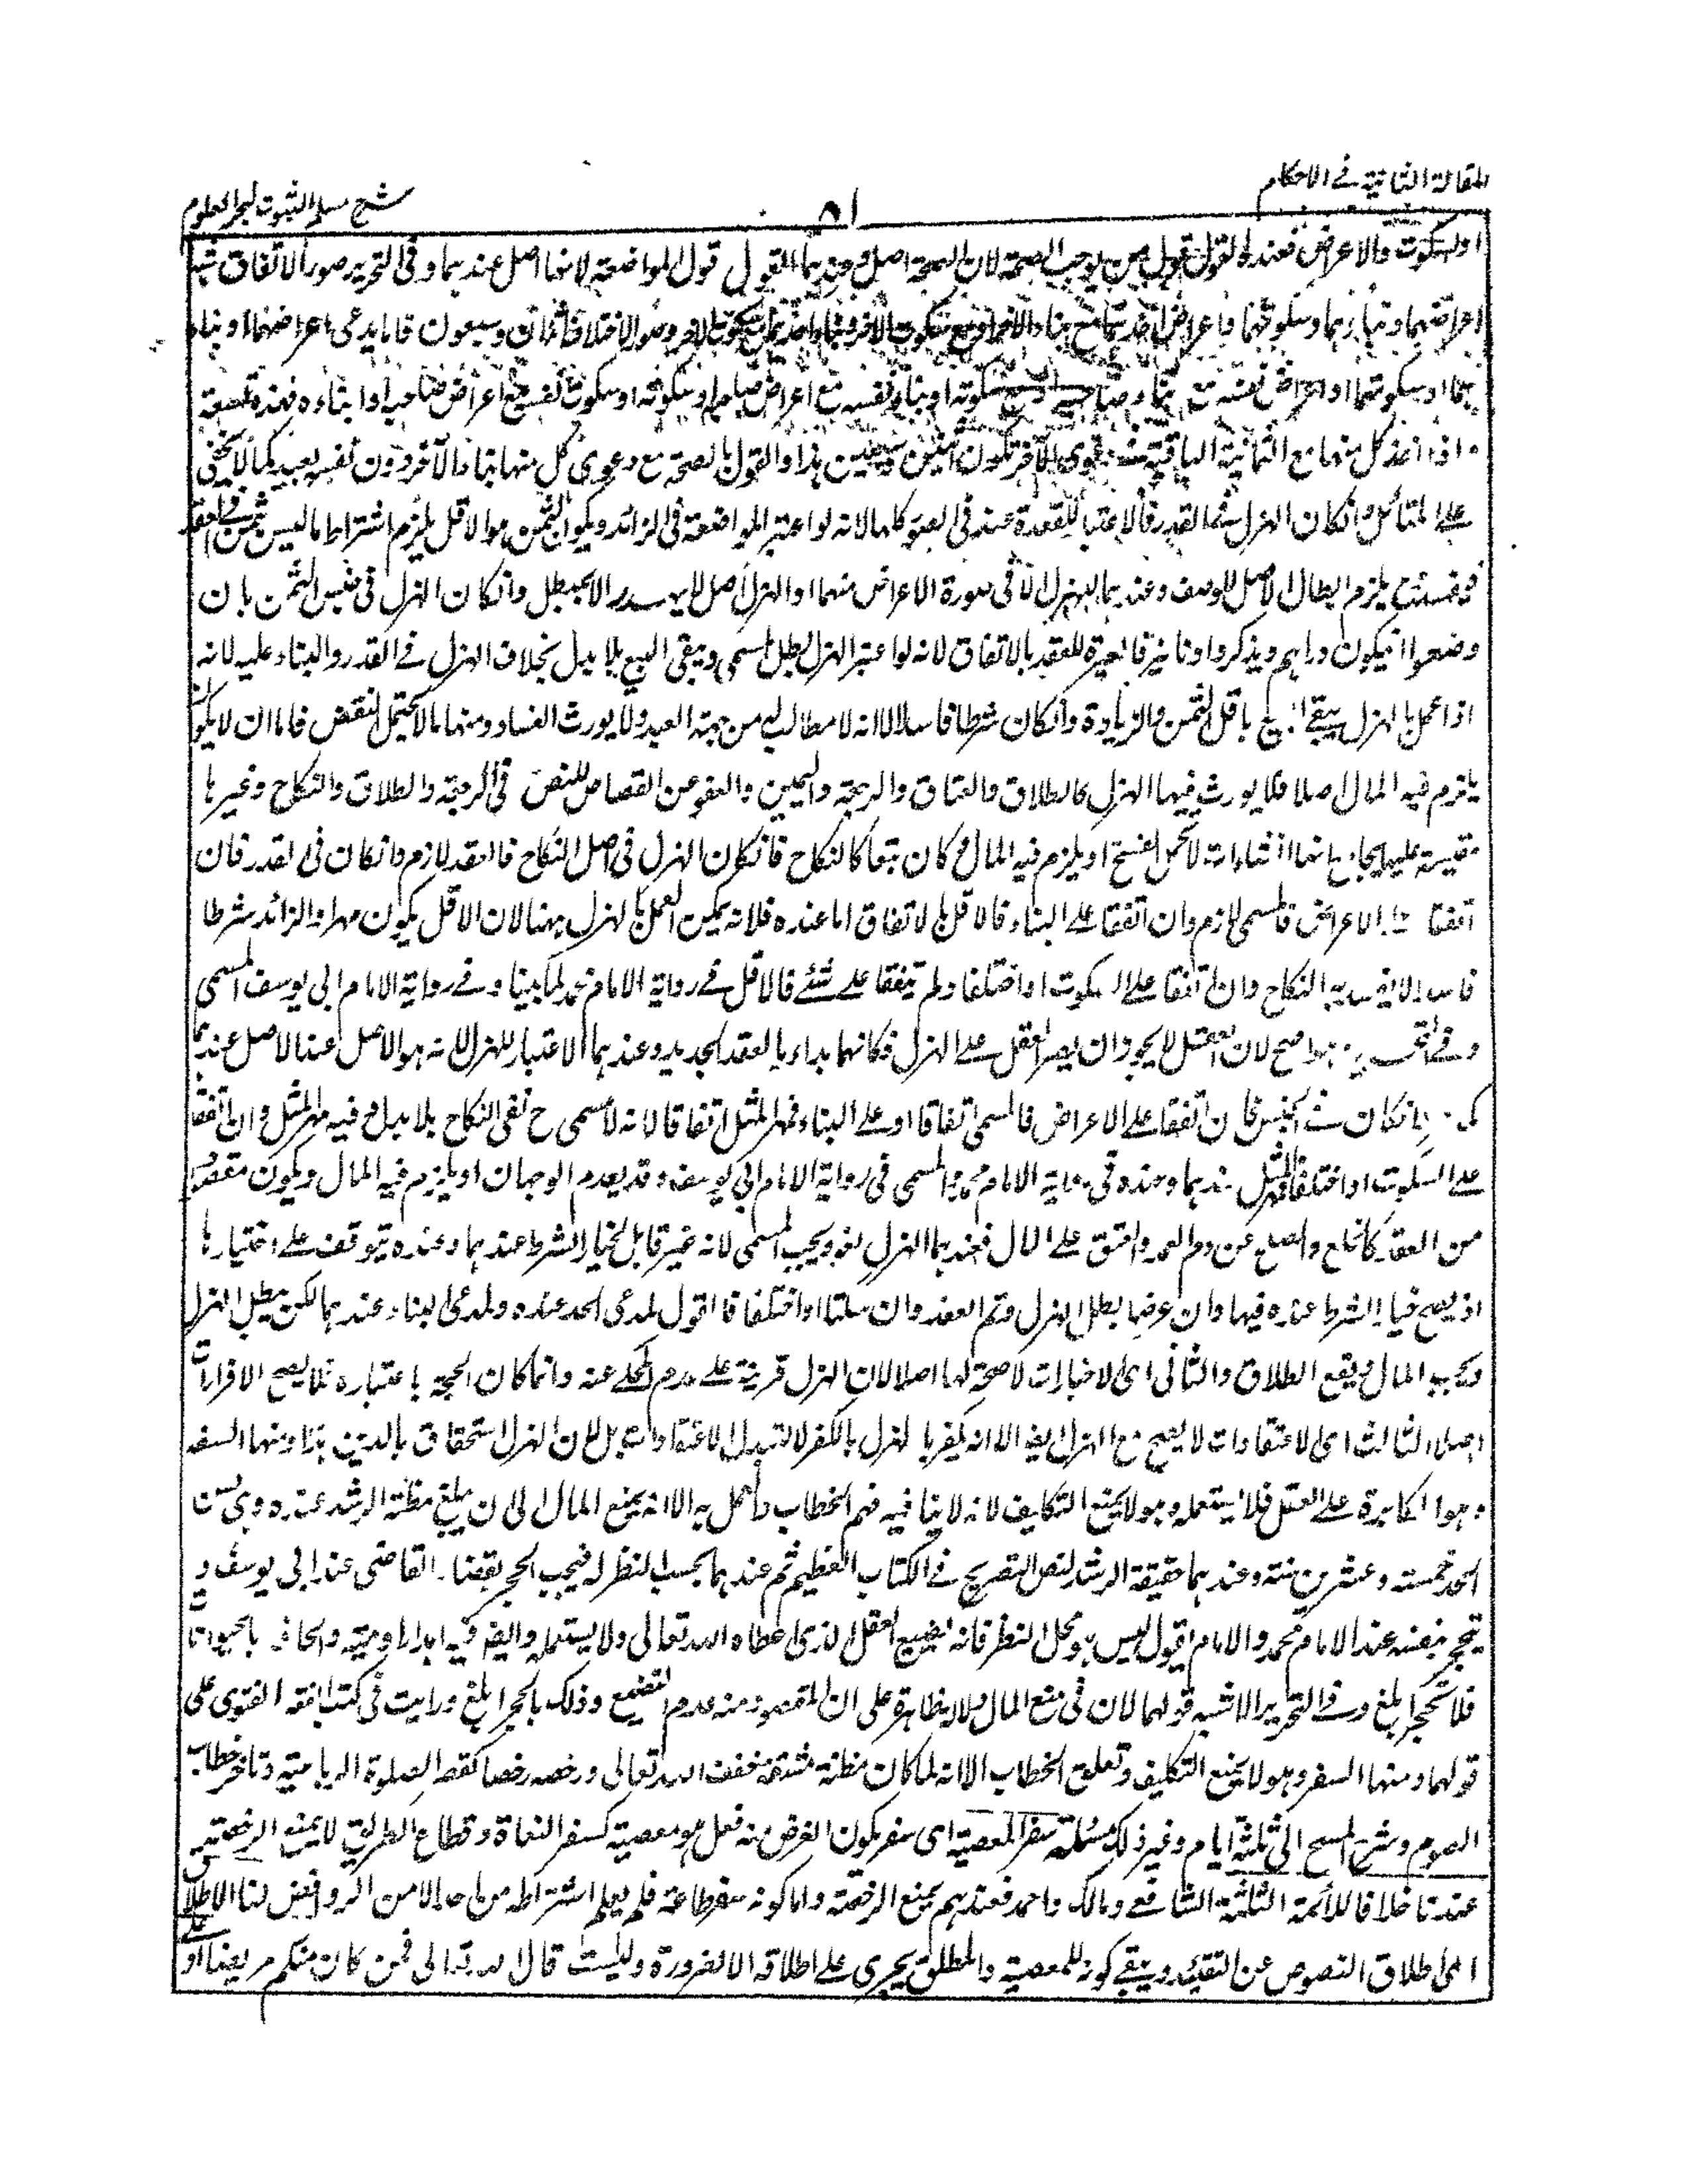 المقالة الثانية في الاحكام
شرح مسلم الثبوت لبحر العلوم
او السكوت والاعراض فعنده القول قول من يوجب الصحة لان الصحة اصل وعندهما القول قول المواضعة لانها اصل عندهما وفى التحرير صور الاتفاق ستة
اعراضهما وبناؤهما وسكوتهما واعراض احدهما مع بناء الآخر او مع سكوت الآخر وبناء احدهما مع سكوت الآخر وصور الاختلاف ثمان وسبعون فاما يدعى اعراضهما او بناء
هما او سكوتهما او اعراض نفسه مع بناء صاحبه او مع سكوته او بناء نفسه مع اعراض صاحبه او سكوته او سكوت نفسه مع اعراض صاحبه او بناءه فهذه تسعة
واذا اخذ كل منها مع الثمانية الباقية من دعوى الآخر تكون اثنين وسبعين هذا والقول بالصحة مع دعوى كل منهما بناء الآخر دون نفسه بعيد كما لا يخفى
على المتأمل وانكان الهزل فى القدر فالاعتبار للعقد عنده فى الصور كلها لانه لو اعتبر المواضعة فى الزائد ويكون الثمن هو الاقل يلزم اشتراط ما ليس بثمن فى العقد
فيفسد يلزم ابطال الاصل للوصف وعندهما الهزل الا فى صورة الاعراض منهما اذ الهزل اصل لا يهدر الا بمبطل وانكان الهزل فى جنس الثمن بان
وضعوا ان يكون دراهم ويذكروا دنانير فالعبرة للعقد بالاتفاق لانه لو اعتبر الهزل بطل المسمى ويبقى البيع بلا بدل بخلاف الهزل فى القدر والبناء عليه لانه
اذا عمل بالهزل يبقى البيع باقل الثمن والزيادة وانكان شرطا فاسدا الا انه لا مطالب له من جهة العبد ولا يورث الفساد ومنها ما لا يحتمل النقض فاما ان لا يكون
يلزم فيه المال اصلا فلا يورث فيها الهزل كالطلاق والعتاق والرجعة واليمين والعفو عن القصاص للنص فى الرجعة والطلاق والنكاح وغيرها
مقيسة عليها بجامع انها انشاءات لا تحتمل الفسخ او يلزم فيه المال وكان تبعا كالنكاح فانكان الهزل فى اصل النكاح فالعقد لازم وانكان فى القدر فان
اتفقا على الاعراض فالمسمى لازم وان اتفقا على البناء فالاقل بالاتفاق اما عنده فلانه يمكن العمل بالهزل ههنا لان الاقل يكون مهرا والزائد شرطا
فاسدا لا يفسد به النكاح وان اتفقا على السكوت او اختلفا ولم يتفقا على شئ فالاقل فى رواية الامام محمد لما بينا وفى رواية الامام ابى يوسف المسمى
وفى التحرير هو اصح لان العقل لا يجوز ان يصر العقل على الهزل فكانهما بداء بالعقد الجديد وعندهما الاعتبار للهزل لانه هو الاصل عندهما
وانكان فى الجنس فان اتفقا على الاعراض فالمسمى اتفاقا او على البناء فمهر المثل اتفاقا لانه لا مسمى ح ففى النكاح بلا بدل وفيه مهر المثل وان اتفقا
على السكوت او اختلفا فمهر المثل عندهما وعنده فى رواية الامام محمد والمسمى فى رواية الامام ابى يوسف وقد يعدم الوجهان او يلزم فيه المال ويكون مقصودا
من العقد كالخلع والصلح عن دم العمد والعتق على المال فعندهما الهزل لغو ويجب المسمى لانه غير قابل لخيار الشرط عندهما وعنده يتوقف على اختيارها
اذ يصح خيار الشرط عنده فيها وان عرضا بطل الهزل وتم العقد وان سكتا او اختلفا فالقول لمدعى الجد عنده ولمدعى البناء عندهما لكن يبطل الهزل
ويجب المال ويقع الطلاق والثانى اى الاخبارات لا صحة لها اصلا لان الهزل قرينة على عدم المحكى عنه وانما كان الحجة باعتباره فلا يصح الاقرارات
اصلا والثالث اى الاعتقادات لا يصح مع الهزل ايضا الا انه يكفر بالهزل بالكفر لا لتبدل الاعتقاد بل لان الهزل استخفاف بالدين هذا ومنها السفه
وهو المكابرة على العقل فلا يستعمله وهو لا يمنع التكليف لانه لا ينافيه فهم الخطاب والعمل به الا انه يمنع المال الى ان يبلغ مظنة الرشد عنده وهى سن
الجد خمسة وعشرين سنة وعندهما حقيقة الرشد لنص التصريح فى الكتاب العظيم ثم عندهما يحسب النظر له فيجب الحجر بقضاء القاضى عند ابى يوسف و
يحجر بنفسه عند الامام محمد والامام يقول ليس هو محل النظر فانه تضييع العقل الذى اعطاه الله تعالى ولا يستعمله وايضا فيه اهدار آدميته والحاقه بالحيوانات
فلا يحجر ابلغ وفى التحرير الاشبه قولهما لان فى منع المال دلالة ظاهرة على ان المقصود منه عدم التضييع وذلك بالحجر ابلغ ورايت فى كتب الفقه الفتوى على
قولهما ومنها السفر وهو لا يمنع التكليف وتعلق الخطاب الا انه لما كان مظنة مشقة فخفف الله تعالى ورخصه رخصا كقصر الصلوة الرباعية وتاخر خطاب
الصوم وشرع المسح الى ثلثة ايام وغير ذلك مسئلة سفر المعصية اى سفر يكون الغرض منه فعل هو معصية كسفر البغاة وقطاع الطريق لا يمنع الرخصة
عندنا خلافا للأئمة الثلثة الشافعى ومالك واحمد فعندهم يمنع الرخصة واما كونه سفر طاعة فلم يعلم اشتراطه من احد الا من الروافض لنا الاطلاق
اى اطلاق النصوص عن التقييد ويبقى كونه للمعصية والمطلق يجرى على اطلاقه الا لضرورة وليست قال الله تعالى فمن كان منكم مريضا او على